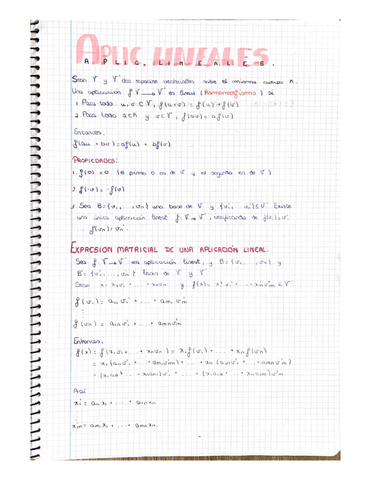 APLIC LINEALES
APLIC. LINEALES.
Sean V y V' dos espacios vectoriales sobre el mismo cuerpo K.
Una aplicación f: V → V' es lineal (homomorfismo) si
1. Para todo u, v ∈ V, f(u+v) = f(u) + f(v)
2. Para todo a ∈ K y v ∈ V, f(av) = a f(v)
Entonces,
f(au + bv) = a f(u) + b f(v)
PROPIEDADES:
1. f(0) = 0 (el primer 0 es de V y el segundo es de V')
2. f(-v) = -f(v)
3. Sea B = {v₁, ..., vn} una base de V y {v₁', ..., vn'} ⊆ V' Existe
una única aplicación lineal f: V → V', verificando que f(v₁) = v₁'
... f(vn) = vn'.
EXPRESION MATRICIAL DE UNA APLICACIÓN LINEAL.
Sea f: V → V' una aplicación lineal, y B = {v₁, ..., vn} y
B' = {v₁', ..., vm'} bases de V y V'
Sean x = x₁v₁ + ... + xnvn y f(x) = x₁'v₁' + ... + xm'vm' ∈ V'
f(v₁) = a₁₁v₁' + ... + am₁vm'
⋮
f(vn) = a₁nv₁' + ... + amnvm'
Entonces,
f(x) = f(x₁v₁ + ... + xnvn) = x₁f(v₁) + ... + xnf(vn)
= x₁(a₁₁v₁' + ... + am₁vm') + ... + xn(a₁nv₁' + ... + amnvm')
Así
x₁' = a₁₁x₁ + ... + a₁nxn
⋮
xm' = am₁x₁ + ... + amnxn